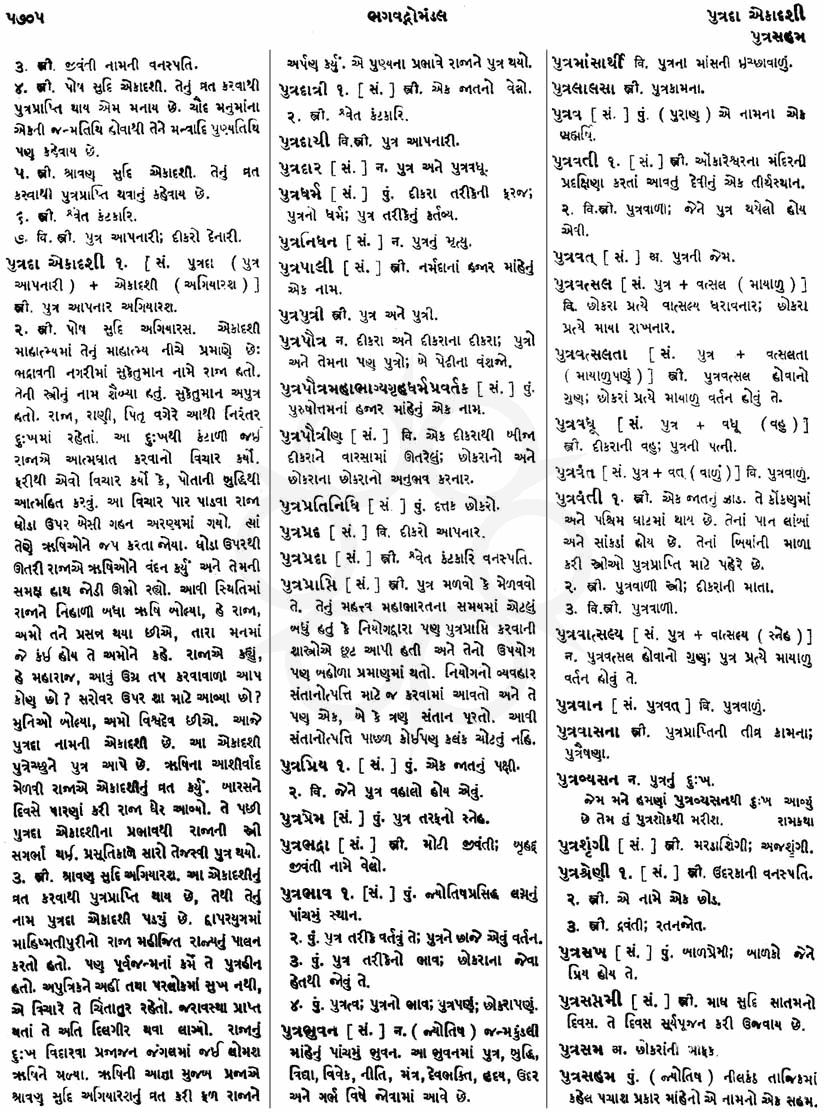 ૫૭૦૫
ભગવદ્ગોમંડલ
પુત્રદા એકાદશી
પુત્રસહમ
૩. સ્ત્રી. જીવંતી નામની વનસ્પતિ.
૪. સ્ત્રી. પોષ સુદિ એકાદશી. તેનું વ્રત કરવાથી
પુત્રપ્રાપ્તિ થાય એમ મનાય છે. ચૌદ મનુમાંના
એકની જન્મતિથિ હોવાથી તેને મન્વાદિ પુણ્યતિથિ
પણ કહેવાય છે.
૫. સ્ત્રી. શ્રાવણ સુદિ એકાદશી. તેનું વ્રત
કરવાથી પુત્રપ્રાપ્તિ થવાનું કહેવાય છે.
૬. સ્ત્રી. શ્વેત કંટકારિ.
૭. વિ. સ્ત્રી. પુત્ર આપનારી; દીકરો દેનારી.
પુત્રદા એકાદશી ૧. [ સં. પુત્રદા ( પુત્ર
આપનારી ) + એકાદશી ( અગિયારશ ) ]
સ્ત્રી. પુત્ર આપનાર અગિયારશ.
૨. સ્ત્રી. પોષ સુદિ અગિયારસ. એકાદશી
માહાત્મ્યમાં તેનું માહાત્મ્ય નીચે પ્રમાણે છેઃ
ભદ્રાવતી નગરીમાં સુકેતુમાન નામે રાજા હતો.
તેની સ્ત્રીનું નામ શૈબ્યા હતું. સુકેતુમાન અપુત્ર
હતો. રાજા, રાણી, પિતૃ વગેરે આથી નિરંતર
દુઃખમાં રહેતાં. આ દુઃખથી કંટાળી જઈ
રાજાએ આત્મઘાત કરવાનો વિચાર કર્યો.
ફરીથી એવો વિચાર કર્યો કે, પોતાની બુદ્ધિથી
આત્મહિત કરવું. આ વિચાર પાર પાડવા રાજા
ઘોડા ઉપર બેસી ગહન અરણ્યમાં ગયો. ત્યાં
તેણે ઋષિઓને જપ કરતા જોયા. ઘોડા ઉપરથી
ઊતરી રાજાએ ઋષિઓને વંદન કર્યું અને તેમની
સમક્ષ હાથ જોડી ઊભો રહ્યો. આવી સ્થિતિમાં
રાજાને નિહાળી બધા ઋષિ બોલ્યા, હે રાજા,
અમો તને પ્રસન્ન થયા છીએ, તારા મનમાં
જે કંઈ હોય તે અમોને કહે. રાજાએ કહ્યું,
હે મહારાજ, આવું ઉગ્ર તપ કરવાવાળા આપ
કોણ છો ? સરોવર ઉપર શા માટે આવ્યા છો ?
મુનિઓ બોલ્યા, અમો વિશ્વદેવ છીએ. આજે
પુત્રદા નામની એકાદશી છે. આ એકાદશી
પુત્રેચ્છુને પુત્ર આપે છે. ઋષિના આશીર્વાદ
મેળવી રાજાએ એકાદશીનું વ્રત કર્યું. બારસને
દિવસે પારણાં કરી રાજા ઘેર આવ્યો. તે પછી
પુત્રદા એકાદશીના પ્રભાવથી રાજાની સ્ત્રી
સગર્ભા થઈ. પ્રસૂતિકાળે સારો તેજસ્વી પુત્ર થયો.
૩. સ્ત્રી. શ્રાવણ સુદિ અગિયારશ. આ એકાદશીનું
વ્રત કરવાથી પુત્રપ્રાપ્તિ થાય છે, તેથી તેનું
નામ પુત્રદા એકાદશી પડ્યું છે. દ્વાપરયુગમાં
માહિષ્મતીપુરીનો રાજા મહીજિત રાજ્યનું પાલન
કરતો હતો. પણ પૂર્વજન્મનાં કર્મે તે પુત્રહીન
હતો. અપુત્રિકને અહીં તથા પરલોકમાં સુખ નથી,
એ વિચારે તે ચિંતાતુર રહેતો. જરાવસ્થા પ્રાપ્ત
થતાં તે અતિ દિલગીર થવા લાગ્યો. રાજાનું
દુઃખ વિદારવા પ્રજાજન જંગલમાં જઈ લોમશ
ઋષિને મળ્યા. ઋષિની આજ્ઞા મુજબ પ્રજાએ
શ્રાવણ સુદિ અગિયારશનું વ્રત કરી ફળ રાજાને
અર્પણ કર્યું. એ પુણ્યના પ્રભાવે રાજાને પુત્ર થયો.
પુત્રદાત્રી ૧. [ સં. ] સ્ત્રી. એક જાતનો વેલો.
૨. સ્ત્રી. શ્વેત કંટકારિ.
પુત્રદાયી વિ.સ્ત્રી. પુત્ર આપનારી.
પુત્રદાર [ સં. ] ન. પુત્ર અને પુત્રવધૂ.
પુત્રધર્મ [ સં. ] પું. દીકરા તરીકેની ફરજ;
પુત્રનો ધર્મ; પુત્ર તરીકેનું કર્તવ્ય.
પુત્રનિધન [ સં. ] ન. પુત્રનું મૃત્યુ.
પુત્રપાલી [ સં. ] સ્ત્રી. નર્મદાનાં હજાર માંહેનું
એક નામ.
પુત્રપુત્રી સ્ત્રી. પુત્ર અને પુત્રી.
પુત્રપૌત્ર ન. દીકરા અને દીકરાના દીકરા; પુત્રો
અને તેમના પણ પુત્રો; બે પેઢીના વંશજો.
પુત્રપૌત્રમહાભાગ્યગૃહધર્મપ્રવર્તક [ સં. ] પું.
પુરુષોત્તમનાં હજાર માંહેનું એક નામ.
પુત્રપૌત્રીણ [ સં. ] વિ. એક દીકરાથી બીજા
દીકરાને વારસામાં ઊતરેલું; છોકરાનો અને
છોકરાના છોકરાનો અનુભવ કરનાર.
પુત્રપ્રતિનિધિ [ સં. ] પું. દત્તક છોકરો.
પુત્રપ્રદ [ સં. ] વિ. દીકરો આપનાર.
પુત્રપ્રદા [ સં. ] સ્ત્રી. શ્વેત કંટકારિ વનસ્પતિ.
પુત્રપ્રાપ્તિ [ સં. ] સ્ત્રી. પુત્ર મળવો કે મેળવવો
તે. તેનું મહત્ત્વ મહાભારતના સમયમાં એટલું
બધું હતું કે નિયોગદ્વારા પણ પુત્રપ્રાપ્તિ કરવાની
શાસ્ત્રોએ છૂટ આપી હતી અને તેનો ઉપયોગ
પણ બહોળા પ્રમાણમાં થતો. નિયોગનો વ્યવહાર
સંતાનોત્પત્તિ માટે જ કરવામાં આવતો અને તે
પણ એક, બે કે ત્રણ સંતાન પૂરતો. આવી
સંતાનોત્પત્તિ પાછળ કોઈપણ કલંક ચોટતું નહિ.
પુત્રપ્રિય ૧. [ સં. ] પું. એક જાતનું પક્ષી.
૨. વિ. જેને પુત્ર વહાલો હોય એવું.
પુત્રપ્રેમ [સં. ] પું. પુત્ર તરફનો સ્નેહ.
પુત્રભદ્રા [ સં. ] સ્ત્રી. મોટી જીવંતી; બૃહદ્
જીવંતી નામે વેલો.
પુત્રભાવ ૧. [ સં. ] પું. જ્યોતિષપ્રસિદ્ધ લગ્નનું
પાંચમું સ્થાન.
૨. પું. પુત્ર તરીકે વર્તવું તે; પુત્રને છાજે એવું વર્તન.
૩. પું. પુત્ર તરીકેનો ભાવ; છોકરાના જેવા
હેતથી જોવું તે.
૪. પું. પુત્રત્વ; પુત્રનો ભાવ; પુત્રપણું; છોકરાપણું.
પુત્રભુવન [ સં. ] ન. ( જ્યોતિષ ) જન્મકુંડલી
માંહેનું પાંચમું ભુવન. આ ભુવનમાં પુત્ર, બુદ્ધિ,
વિદ્યા, વિવેક, નીતિ, મંત્ર, દેવભક્તિ, હૃદય, ઉદર
અને ગર્ભ વિષે જોવામાં આવે છે.
પુત્રમાંસાર્થી વિ. પુત્રના માંસની ઇચ્છાવાળું.
પુત્રલાલસા સ્ત્રી. પુત્રકામના.
પુત્રવ [ સં. ] પું. ( પુરાણ ) એ નામના એક
બ્રહ્મર્ષિ.
પુત્રવતી ૧. [ સં. ] સ્ત્રી. ઓંકારેશ્વરના મંદિરની
પ્રદક્ષિણા કરતાં આવતું દેવીનું એક તીર્થસ્થાન.
૨. વિ.સ્ત્રી. પુત્રવાળા; જેને પુત્ર થયેલો હોય
એવી.
પુત્રવત્ [ સં. ] અ. પુત્રની જેમ.
પુત્રવત્સલ [ સં. પુત્ર + વત્સલ ( માયાળુ ) ]
વિ. છોકરા પ્રત્યે વાત્સલ્ય ધરાવનાર; છોકરા
પ્રત્યે માયા રાખનાર.
પુત્રવત્સલતા [ સં. પુત્ર + વત્સલતા
( માયાળુપણું ) ] સ્ત્રી. પુત્રવત્સલ હોવાનો
ગુણ; છોકરાં પ્રત્યે માયાળુ વર્તન હોવું તે.
પુત્રવધૂ [ સં. પુત્ર + વધૂ ( વહુ ) ]
સ્ત્રી. દીકરાની વહુ; પુત્રની પત્ની.
પુત્રવંત [ સં. પુત્ર + વત્ ( વાળું ) ] વિ. પુત્રવાળું.
પુત્રવંતી ૧. સ્ત્રી. એક જાતનું ઝાડ. તે કોંકણમાં
અને પશ્ચિમ ઘાટમાં થાય છે. તેનાં પાન લાંબાં
અને સાંકડાં હોય છે. તેનાં બિયાંની માળા
કરી સ્ત્રીઓ પુત્રપ્રાપ્તિ માટે પહેરે છે.
૨. સ્ત્રી. પુત્રવાળી સ્ત્રી; દીકરાની માતા.
૩. વિ.સ્ત્રી. પુત્રવાળી.
પુત્રવાત્સલ્ય [ સં. પુત્ર + વાત્સલ્ય ( સ્નેહ ) ]
ન. પુત્રવત્સલ હોવાનો ગુણ; પુત્ર પ્રત્યે માયાળુ
વર્તન હોવું તે.
પુત્રવાન [ સં. પુત્રવત્ ] વિ. પુત્રવાળું.
પુત્રવાસના સ્ત્રી. પુત્રપ્રાપ્તિની તીવ્ર કામના;
પુત્રૈષણા.
પુત્રવ્યસન ન. પુત્રનું દુઃખ.
જેમ મને હમણાં પુત્રવ્યસનથી દુઃખ આવ્યું
છે તેમ તું પુત્રશોકથી મરીશ. રામકથા
પુત્રશૃંગી [ સં. ] સ્ત્રી. મરડાશિંગી; અજશૃંગી.
પુત્રશ્રેણી ૧. [ સં. ] સ્ત્રી. ઉંદરકાની વનસ્પતિ.
૨. સ્ત્રી. એ નામે એક છોડ.
૩. સ્ત્રી. દ્રવંતી; રતનજોત.
પુત્રસખ [ સં. ] પું. બાળપ્રેમી; બાળકો જેને
પ્રિય હોય તે.
પુત્રસપ્તમી [ સં. ] સ્ત્રી. માઘ સુદિ સાતમનો
દિવસ. તે દિવસ સૂર્યપૂજન કરી ઉજવાય છે.
પુત્રસમ અ. છોકરાંની માફક.
પુત્રસહમ પું. ( જ્યોતિષ ) નીલકંઠ તાજિકમાં
કહેલ પચાશ પ્રકાર માંહેનો એ નામનો એક સહમ.